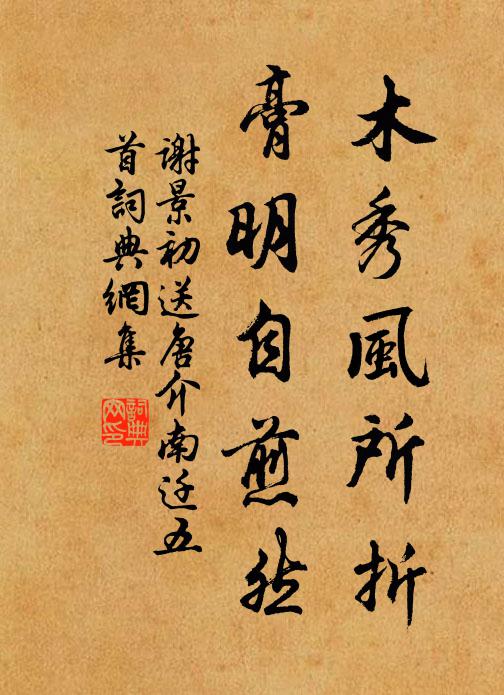 木秀風所折
膏明自煎然
謝景初送唐介南迁五
首詞典網集
詞典
网印